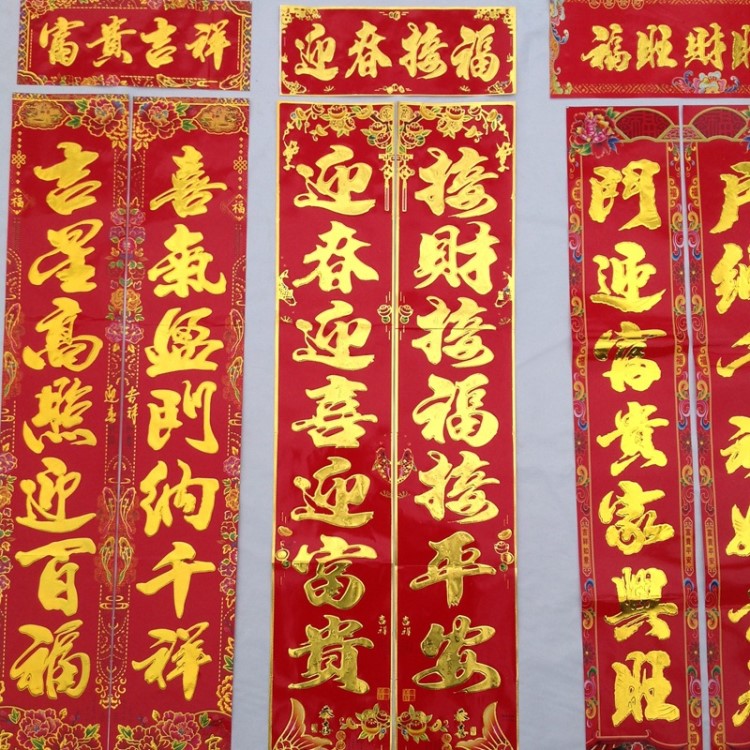 富貴吉祥
吉星高照迎百福
喜氣盈門納千祥
福
福
迎喜
吉祥
迎春接福
迎春迎喜迎富貴
接財接福接平安
吉祥
吉祥
福旺財
門迎富貴家興旺